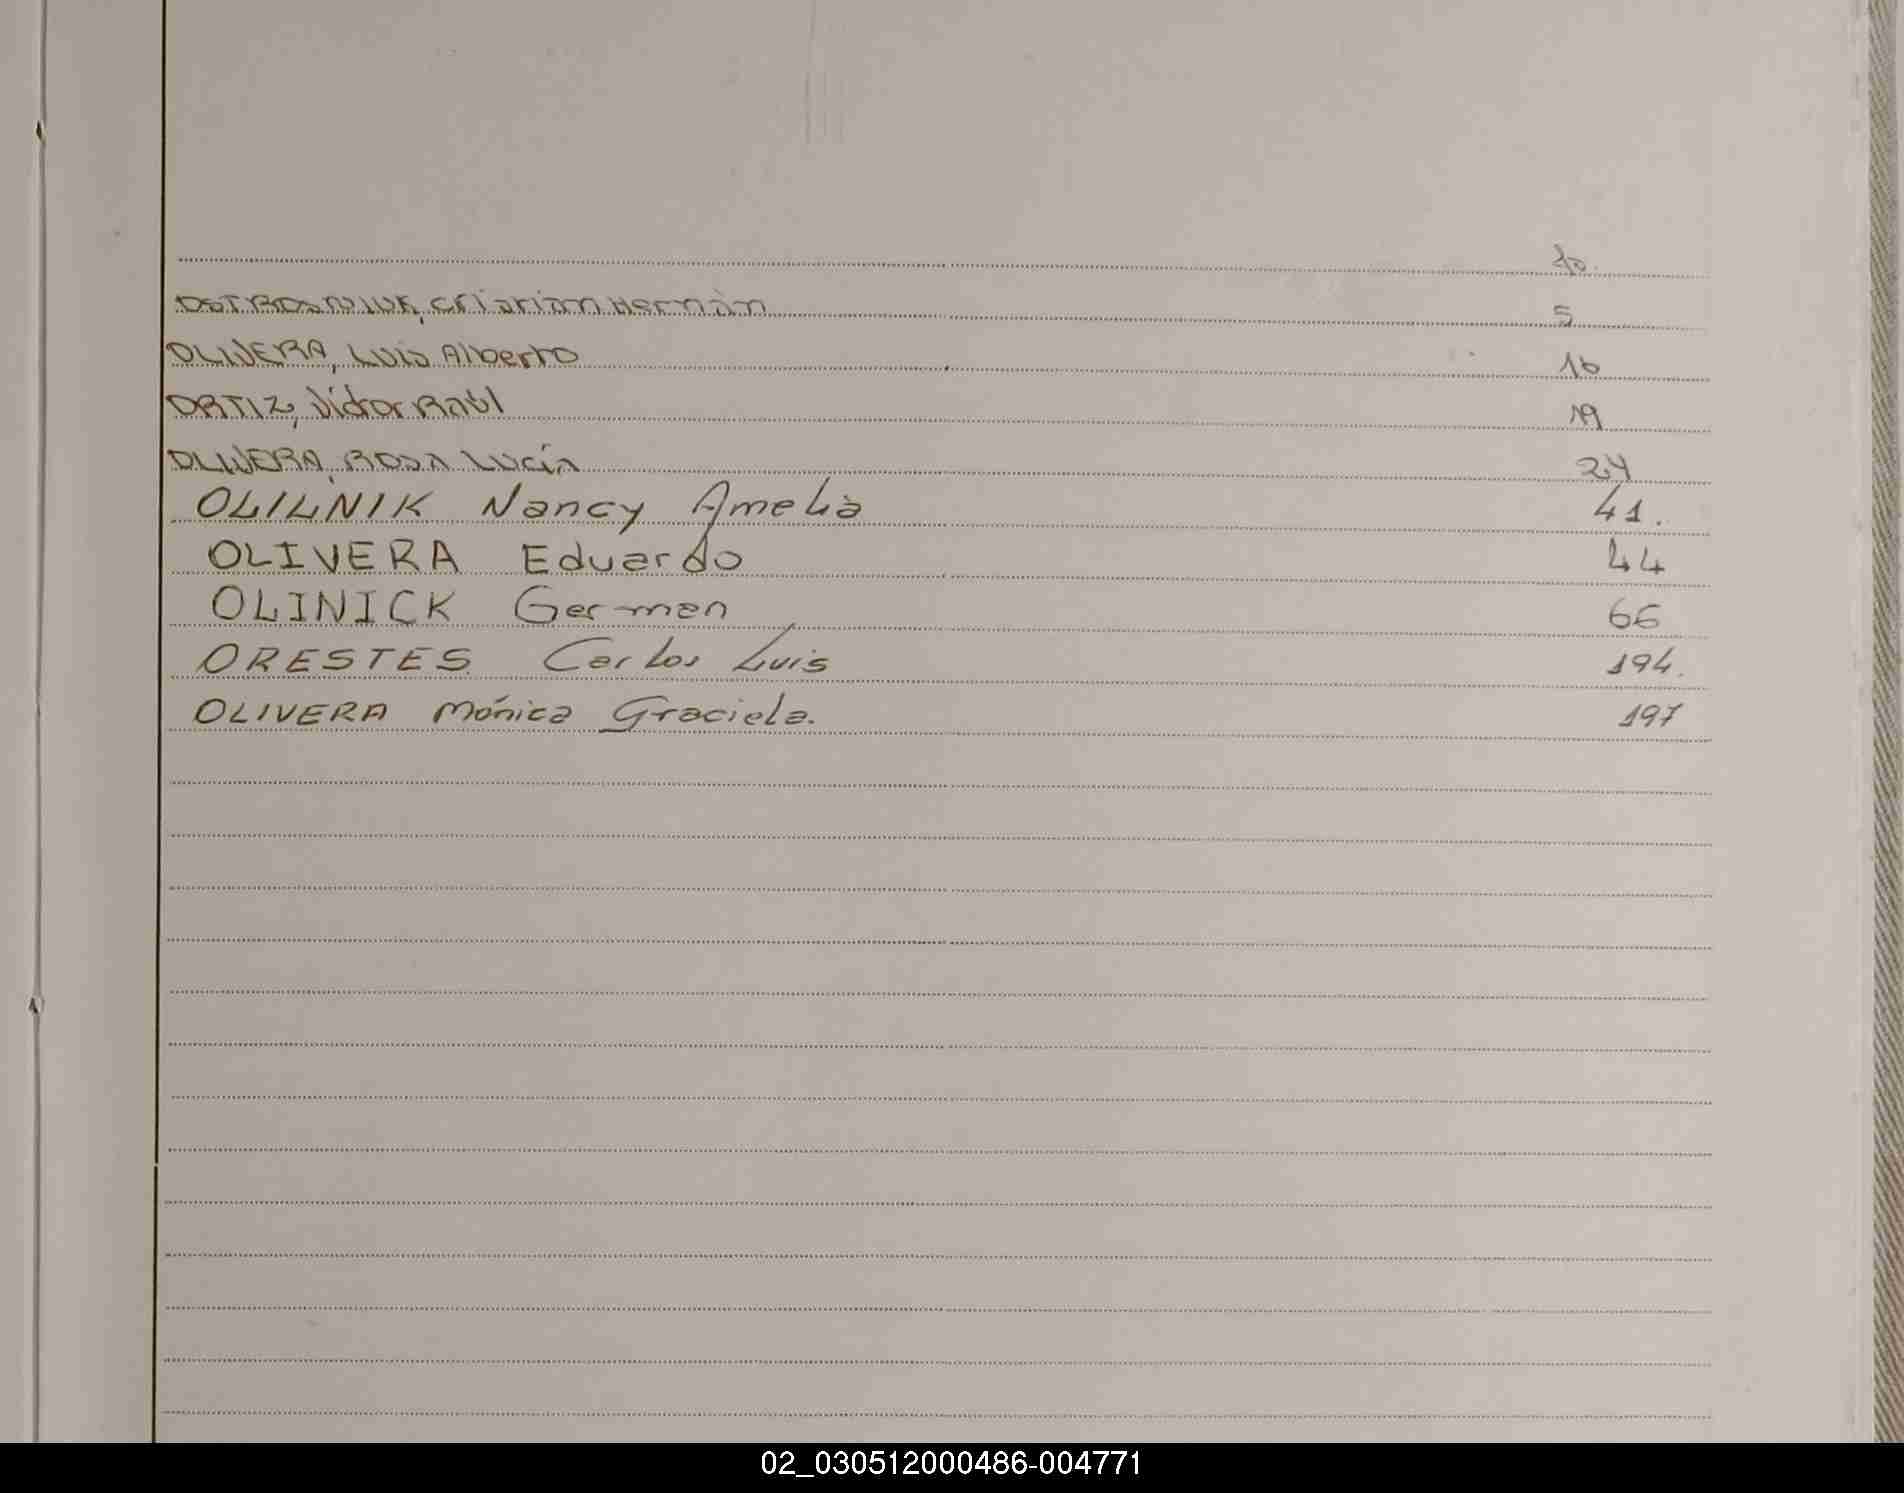 fo.
OSTROSNIUK, Cristian Hernán 5
OLIVERA, Luis Alberto 16
ORTIZ, Víctor Raúl 19
OLIVERA, ROSA LUCÍA 24
OLILNIK Nancy Amelia 41.
OLIVERA Eduardo 44
OLINICK German 66
ORESTES Carlos Luis 194.
OLIVERA Mónica Graciela. 197
02_030512000486-004771